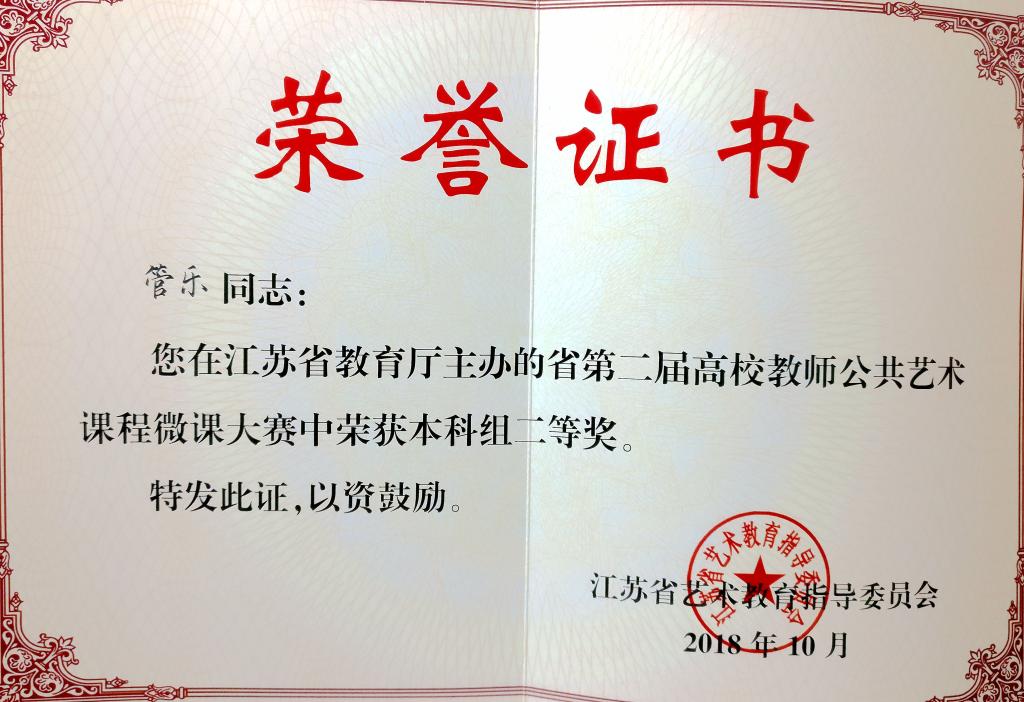 荣誉证书
管乐 同志：
您在江苏省教育厅主办的省第二届高校教师公共艺术
课程微课大赛中荣获本科组二等奖。
特发此证，以资鼓励。
江苏省艺术教育指导委员会
江苏省艺术教育指导委员会
2018 年 10 月